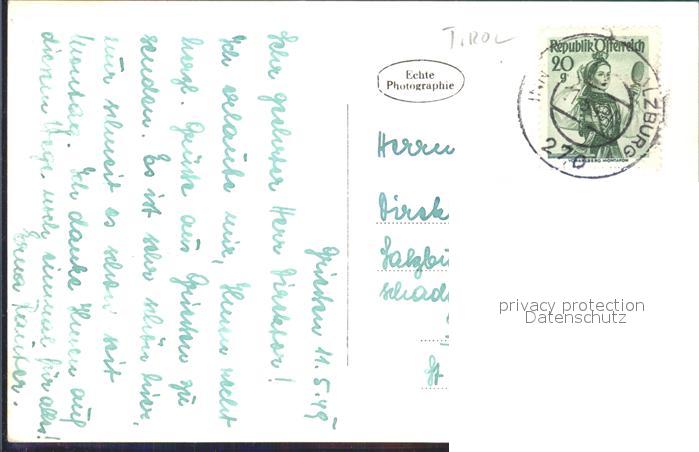 Griesbau 11.5.49
Sehr geehrter Herr Direktor!
Ich erlaube mir, Ihnen recht
herzl. Grüße aus zu
senden. Es ist sehr schön hier,
nur schneit es schon seit
Montag. Ich danke Ihnen auf
diesem Wege noch einmal für alles!
Erna
T.ROL
Echte
Photographie
Republik Österreich
20
g
VORARLBERG MONTAFON
LZBURG
2
Herrn
Direk
Salzbu
schad
St
privacy protection
Datenschutz